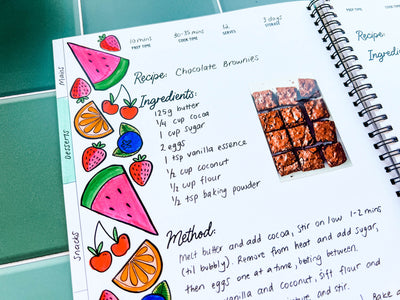 10 mins 30-35 mins 12 5 days
PREP TIME COOK TIME SERVES STORES
Recipe: Chocolate Brownies
Ingredients:
125g butter
1/4 cup cocoa
1 cup sugar
2 eggs
1 tsp vanilla essence
1/2 cup coconut
1/2 cup flour
1/2 tsp baking powder
Method:
Melt butter and add cocoa, stir on low 1-2 mins
(til bubbly). Remove from heat and add sugar,
then eggs one at a time, beating between.
vanilla and coconut, sift flour and
and stir.
Bake a
Mains
Desserts
Snacks
PREP TIME
Recipe:
Ingredie